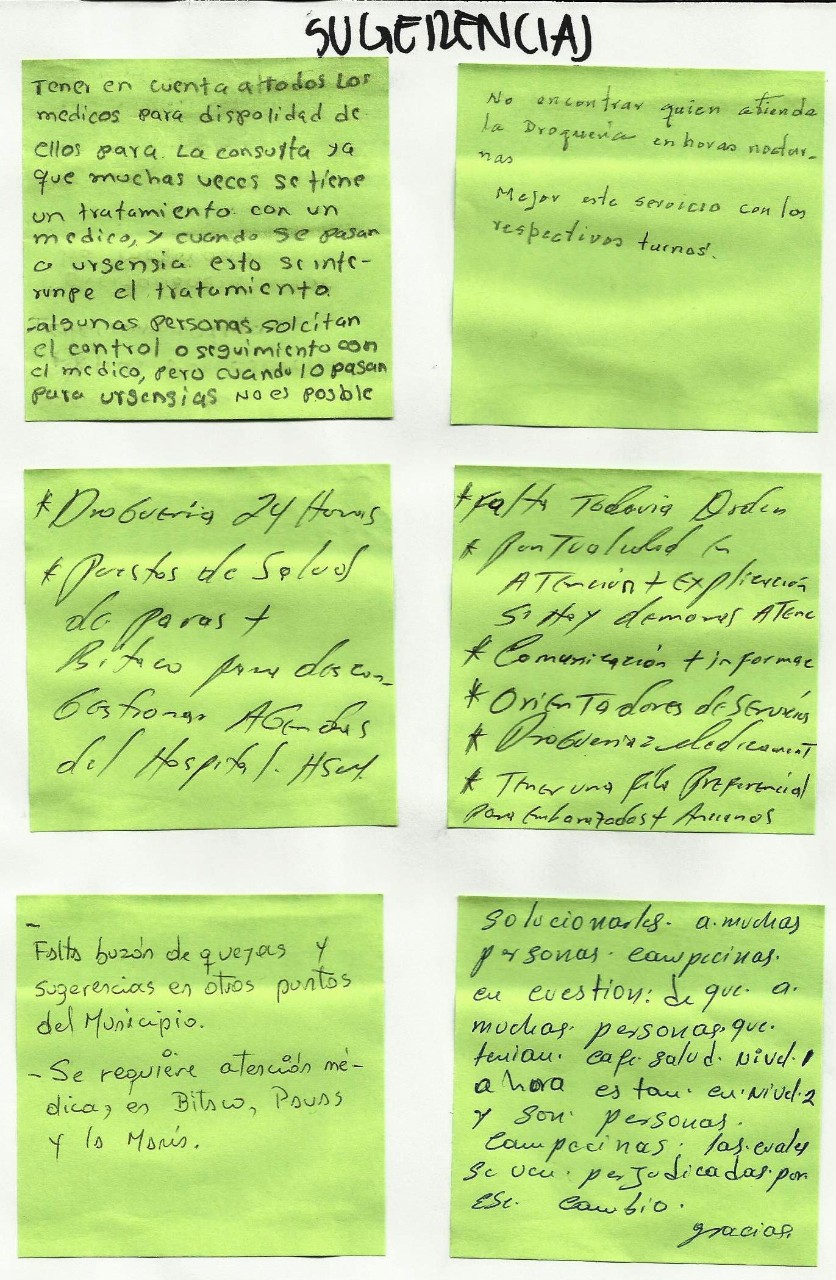 SUGERENCIAS
Tener en cuenta a todos los
medicos para dispolidad de
ellos para. La consulta ya
que muchas veces se tiene
un tratamiento con un
medico, y cuando se pasan
a urgensia esto se inte-
runpe el tratamiento.
-algunas personas solcitan
el control o seguimiento con
el medico, pero cuando lo pasan
para urgensias no es posble
No encontrar quien atienda
la Droqueria en horas noctur-
nas
Mejor este servicio con los
respectivos turnos.
* Drogueria 24 Horas
* Puestos de Salud
de pavas +
Bitaco para descon-
Gestionar Agendas
del Hospital. HSM.
* Falta Todavia Orden
* puntualidad en
Atención + Explicación
Si Hay demoras Atenc
* Comunicación + informac
* Orientadores de Servicios
* Droguerias Medicament
* Tener una fila Preferencial
para Embarazadas + Ancianos
Falta buzón de quejas y
sugerencias en otros puntos
del Municipio.
- Se requiere atención mé-
dica, en Bitaco, Pavas
y la María.
Solucionarles. a. muchas
personas. campecinas.
en cuestion: de que. a.
muchas. personas. que.
tenian. cafe. salud. nivel. 1
ahora estan. en. nivel. 2
y son. personas.
campecinas. las. cuales
se ven. perjudicadas. por
ese. cambio.
gracias.